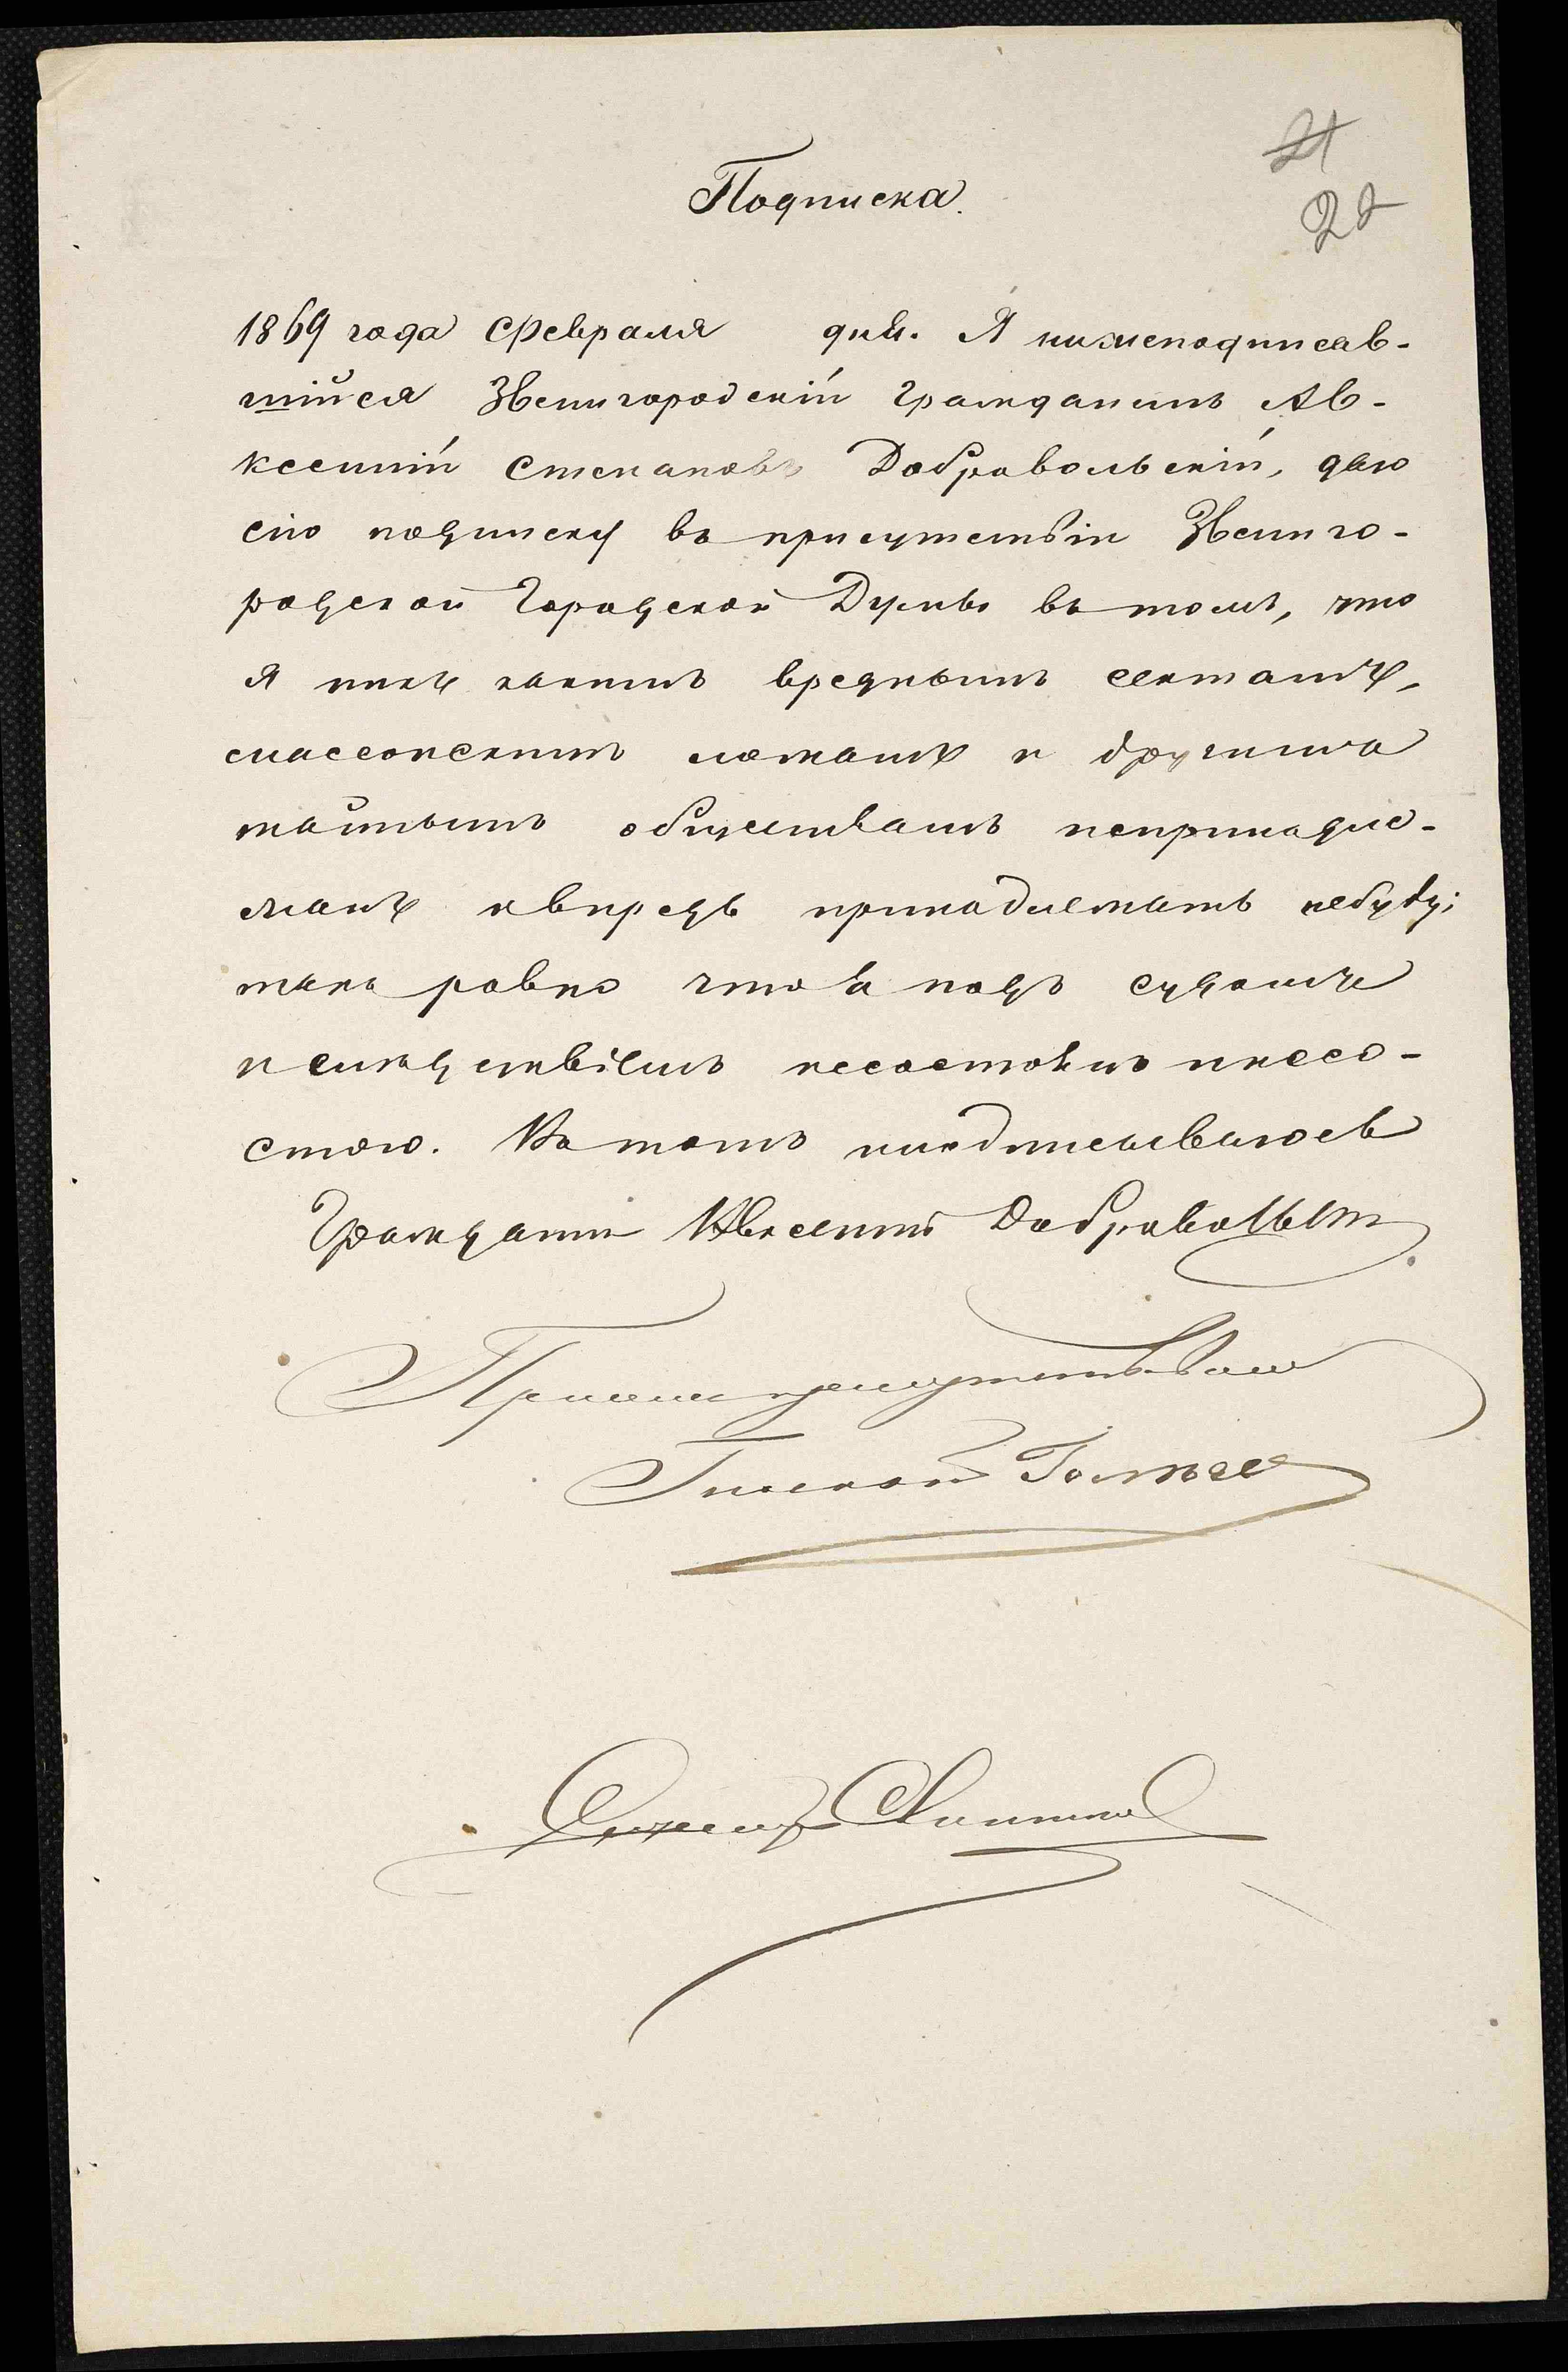 21
22
Подписка.
1869 года Февраля дня. Я нижеподписав-
шійся Звенигородскій Гражданинъ Ав-
ксентій Степановъ Добровольскій, даю
сію подписку въ присутствіи Звениго-
родской Городской Думы въ томъ, что
я никъ какимъ вреднымъ сектамъ,
массонскимъ ложамъ и другимъ
тайнымъ обществамъ непринадле-
жалъ и впредь принадлежать небуду;
такъ равно что и подъ судомъ
и слѣдствіемъ несостоялъ и несо-
стою. Въ томъ и подписываюсь
Гражданинъ Авксентій Добровольскій
При семъ присутствовали
Гласной